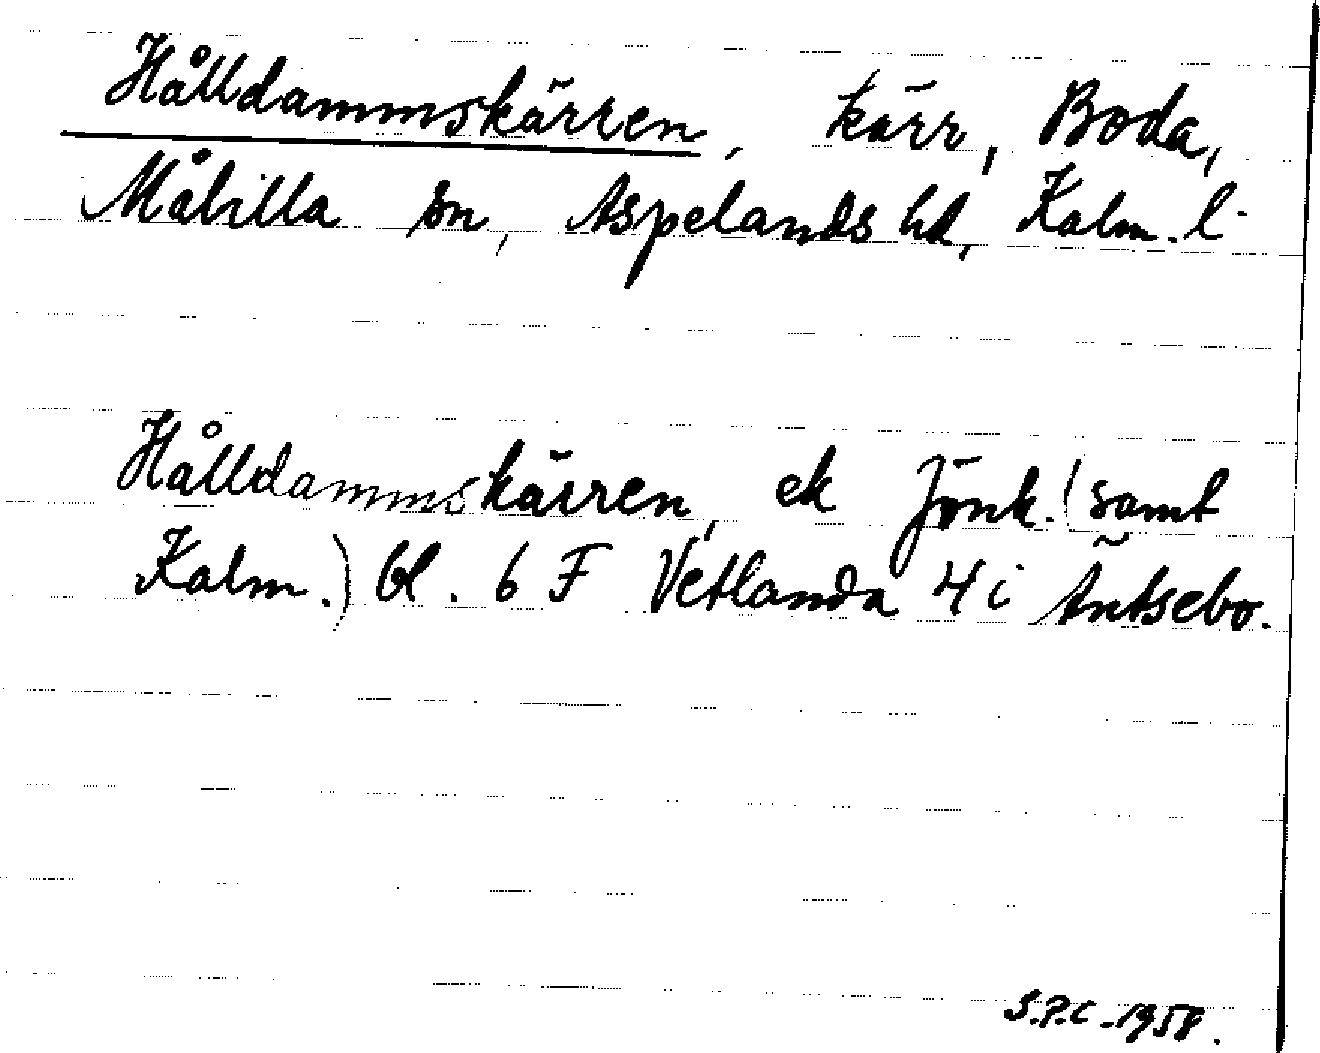 Hålldammskärren, kärr, Boda,
Målilla sn, Aspelands hd, Kalm. l.
Hålldammskärren, ek Jönk. (samt
Kalm.) bl. 6 F Vetlanda 4 i Äntsebo.
S.P.C - 1958.